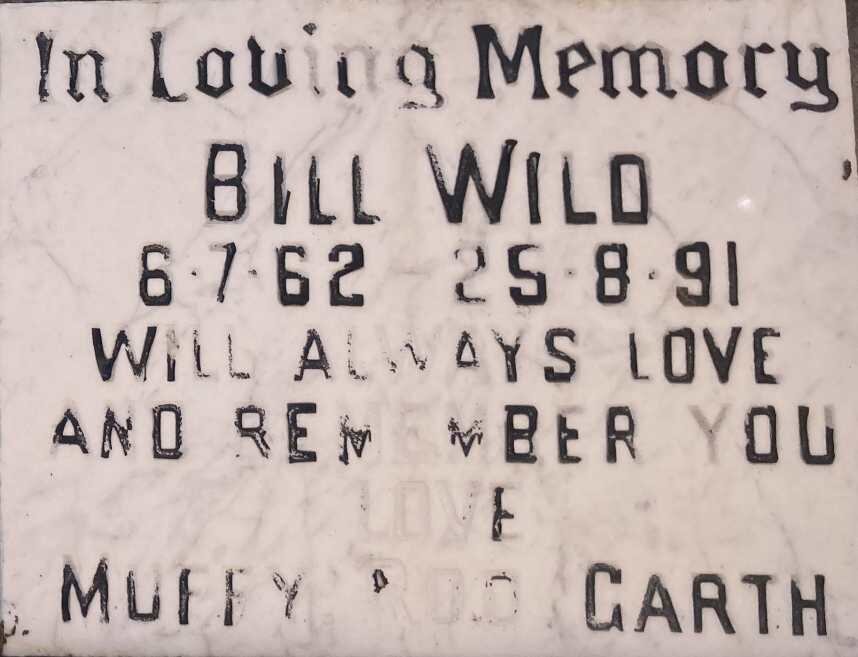 In Loving Memory
BILL WILD
6·7·62 - 25·8·91
WILL ALWAYS LOVE
AND REMEMBER YOU
LOVE
MUFFY, ROD GARTH